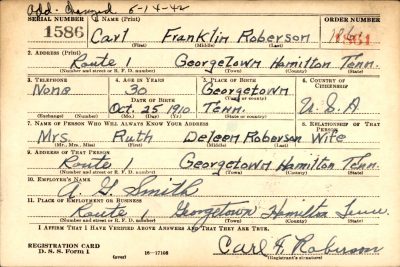 Add. Changed 6-14-42
SERIAL NUMBER 1. NAME (Print) ORDER NUMBER
1586 Carl Franklin Roberson
(First) (Middle) (Last)
2. ADDRESS (Print)
Route 1 Georgetown Hamilton Tenn.
(Number and street or R. F. D. number) (Town) (County) (State)
3. TELEPHONE 4. AGE IN YEARS 5. PLACE OF BIRTH 6. COUNTRY OF CITIZENSHIP
None 30 Georgetown
DATE OF BIRTH (Town or county)
Oct. 25 1910 Tenn. U.S.A
(Exchange) (Number) (Mo.) (Day) (Yr.) (State or country)
7. NAME OF PERSON WHO WILL ALWAYS KNOW YOUR ADDRESS 8. RELATIONSHIP OF THAT PERSON
Mrs. Ruth Roberson Wife
(Mr., Mrs., Miss) (First) (Middle) (Last)
9. ADDRESS OF THAT PERSON
Route 1 Georgetown Hamilton Tenn.
(Number and street or R. F. D. number) (Town) (County) (State)
10. EMPLOYER'S NAME
A. G. Smith
11. PLACE OF EMPLOYMENT OR BUSINESS
Route 1 Georgetown Hamilton Tenn.
(Number and street or R. F. D. number) (Town) (County) (State)
I AFFIRM THAT I HAVE VERIFIED ABOVE ANSWERS AND THAT THEY ARE TRUE.
REGISTRATION CARD
D. S. S. Form 1 16-17105 Carl F. Roberson
(over) (Registrant's signature)